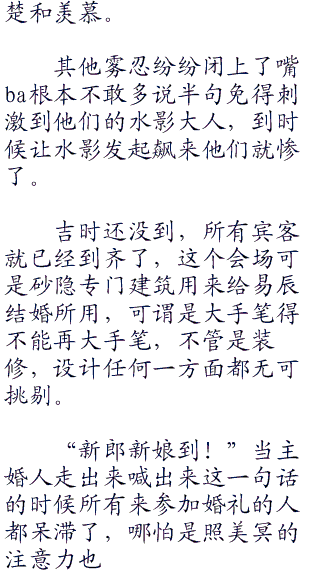 楚和羡慕。
其他雾忍纷纷闭上了嘴
ba根本不敢多说半句免得刺
激到他们的水影大人，到时
候让水影发起飙来他们就惨
了。
吉时还没到，所有宾客
就已经到齐了，这个会场可
是砂隐专门建筑用来给易辰
结婚所用，可谓是大手笔得
不能再大手笔，不管是装
修，设计任何一方面都无可
挑剔。
“新郎新娘到！”当主
婚人走出来喊出来这一句话
的时候所有来参加婚礼的人
都呆滞了，哪怕是照美冥的
注意力也